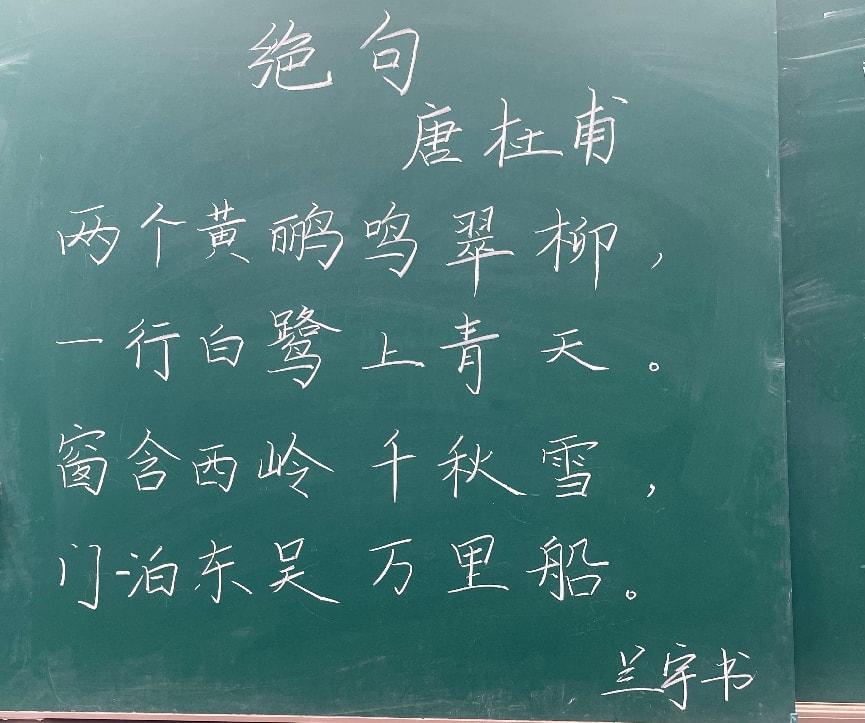 绝句
唐杜甫
两个黄鹂鸣翠柳，
一行白鹭上青天。
窗含西岭千秋雪，
门泊东吴万里船。
兰宇书